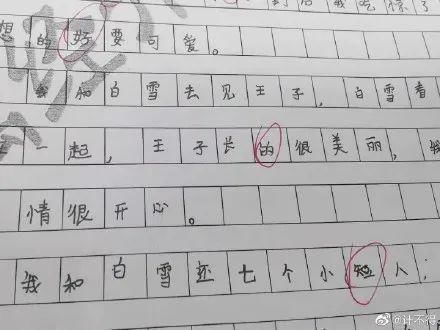 到后我吃惊了
想的好要可爱。
我和白雪去见王子，白雪看
一起，王子长的很美丽，我
情很开心。
我和白雪还七个小短人；
@计不得